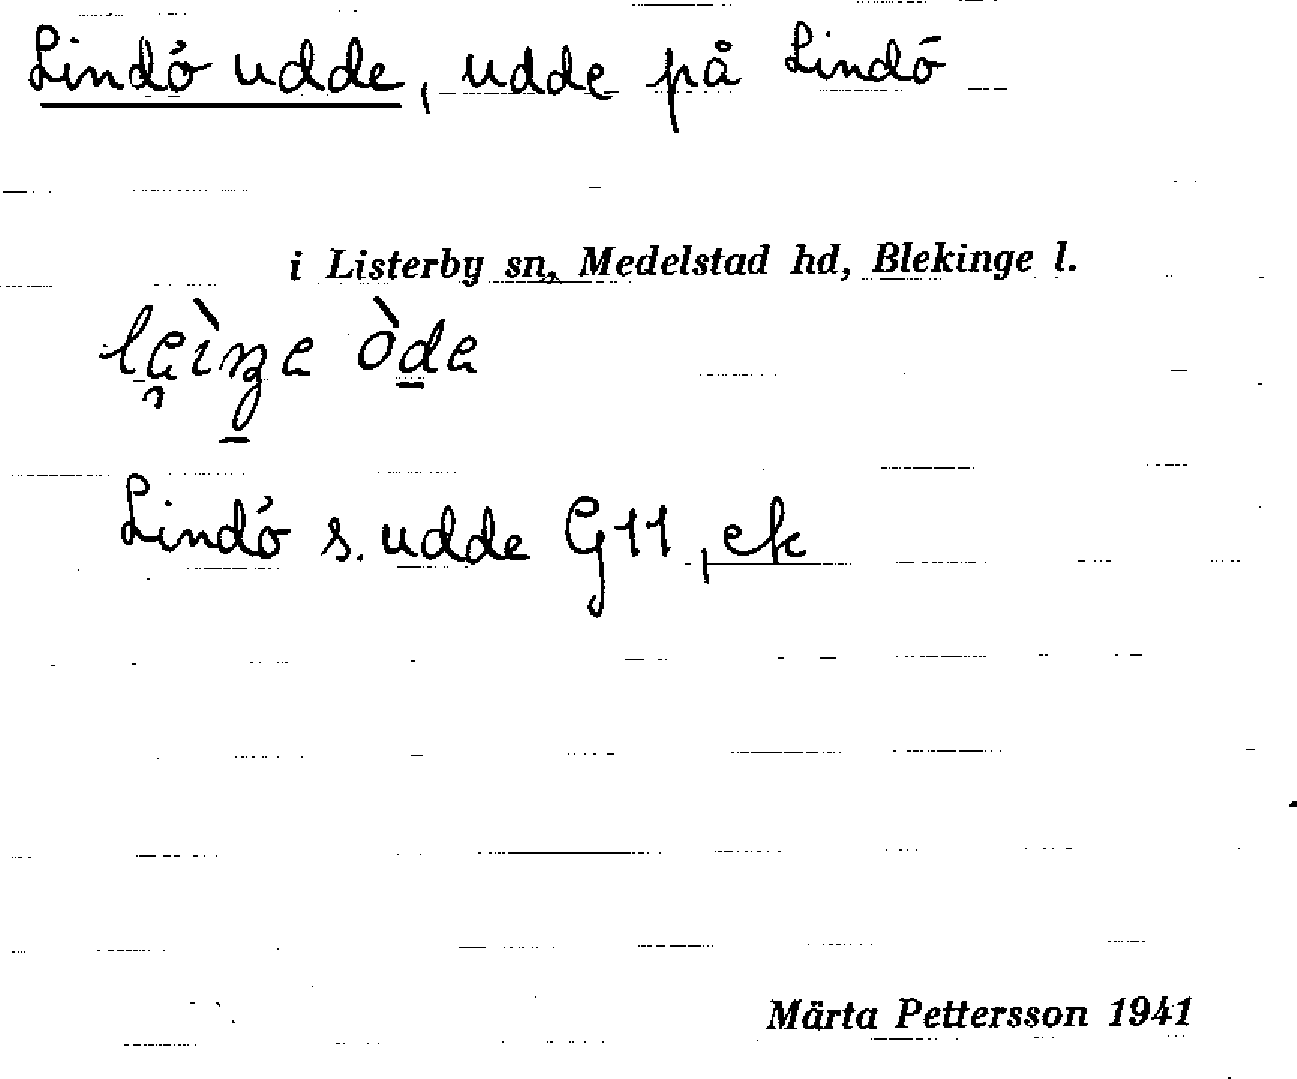 Lindö udde, udde på Lindö
i Listerby sn, Medelstad hd, Blekinge l.
Lindö s. udde G11, ek
Märta Pettersson 1941